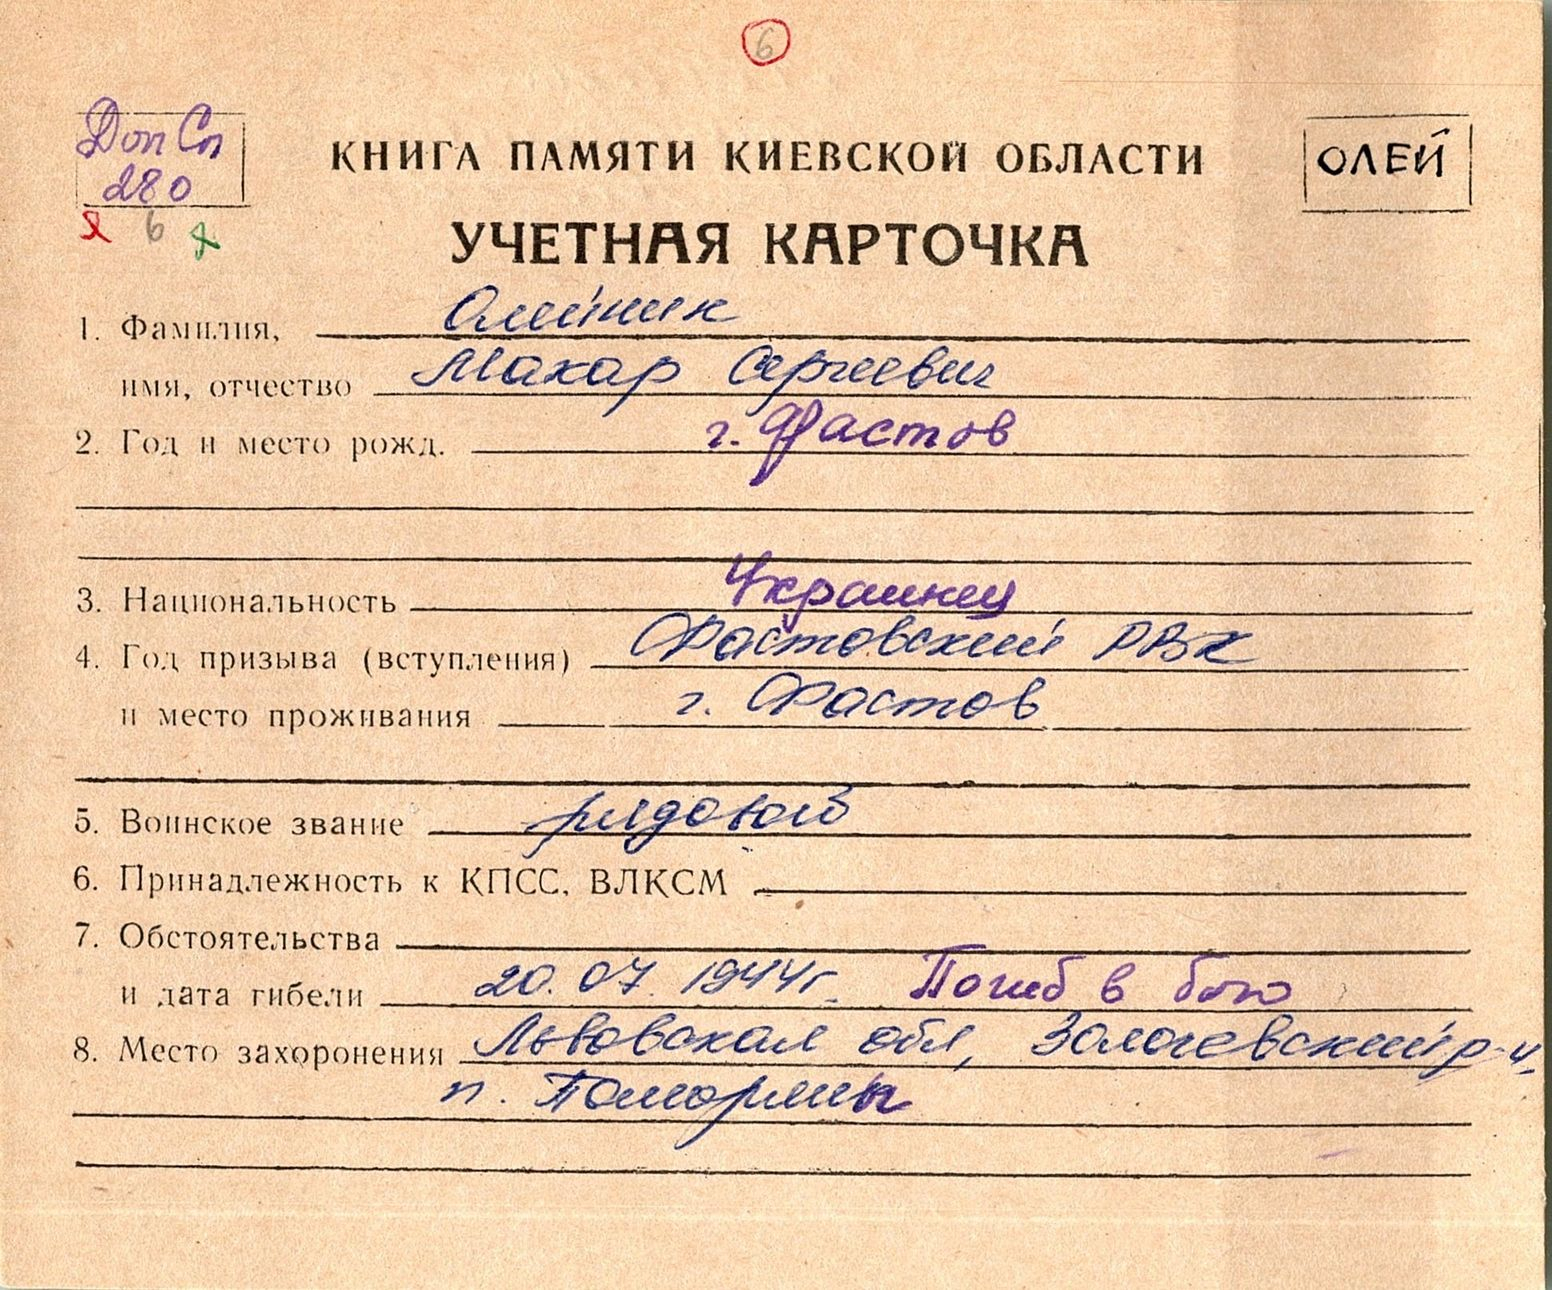 6
Доп Сп
280
6
КНИГА ПАМЯТИ КИЕВСКОЙ ОБЛАСТИ
ОЛЕЙ
УЧЕТНАЯ КАРТОЧКА
1. Фамилия, Олейник
имя, отчество Макар Сергеевич
2. Год и место рожд. г. Фастов
3. Национальность Украинец
4. Год призыва (вступления) Фастовский РВК
и место проживания г. Фастов
5. Воинское звание рядовой
6. Принадлежность к КПСС, ВЛКСМ
7. Обстоятельства
и дата гибели 20.07.1944г. Погиб в бою
8. Место захоронения Львовская обл, Золочевский р-н,
п. Поморяны